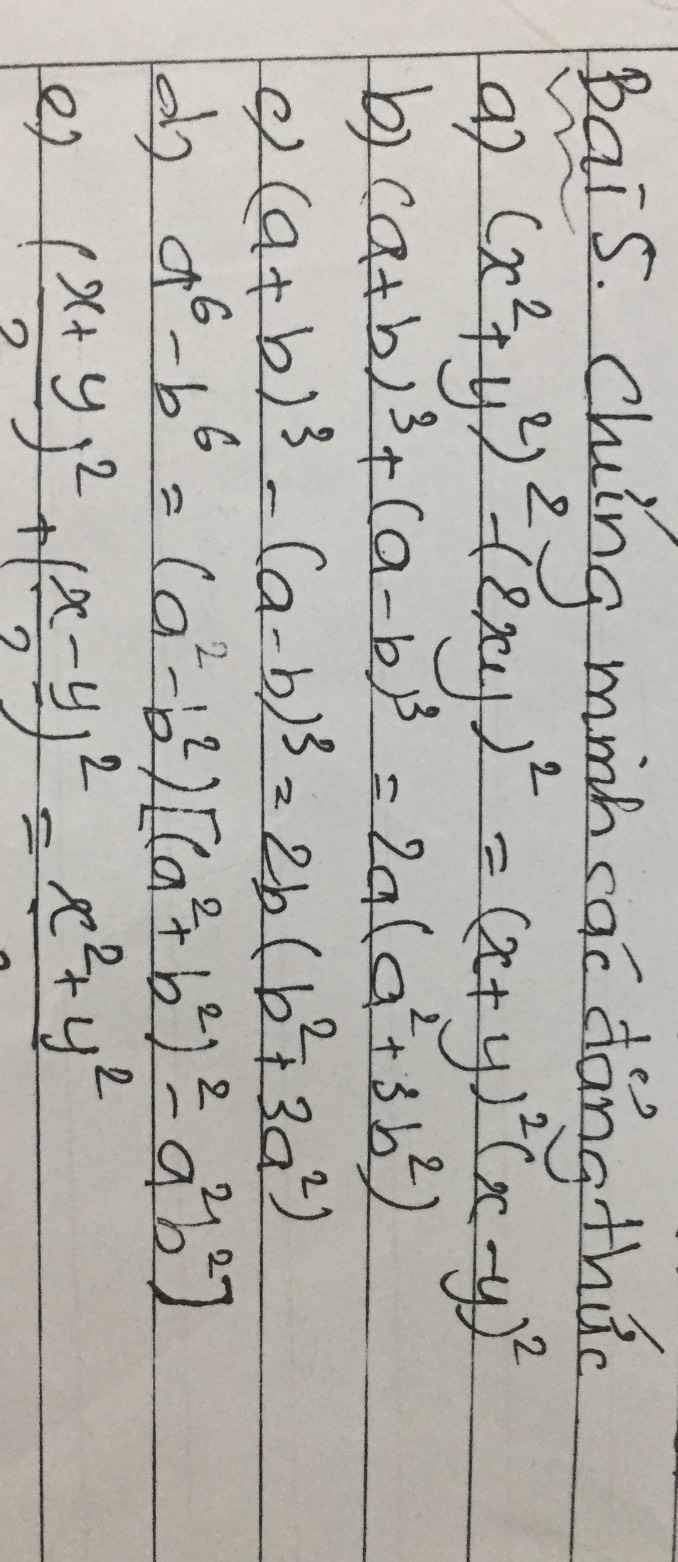 Bài 5. Chứng minh các đẳng thức
a) (x² + y²)² - (2xy)² = (x + y)² (x - y)²
b) (a + b)³ + (a - b)³ = 2a(a² + 3b²)
c) (a + b)³ - (a - b)³ = 2b(b² + 3a²)
d) a⁶ - b⁶ = (a² - b²)[(a² + b²)² - a²b²]
e) (x + y / 2)² + (x - y / 2)² = x² + y²